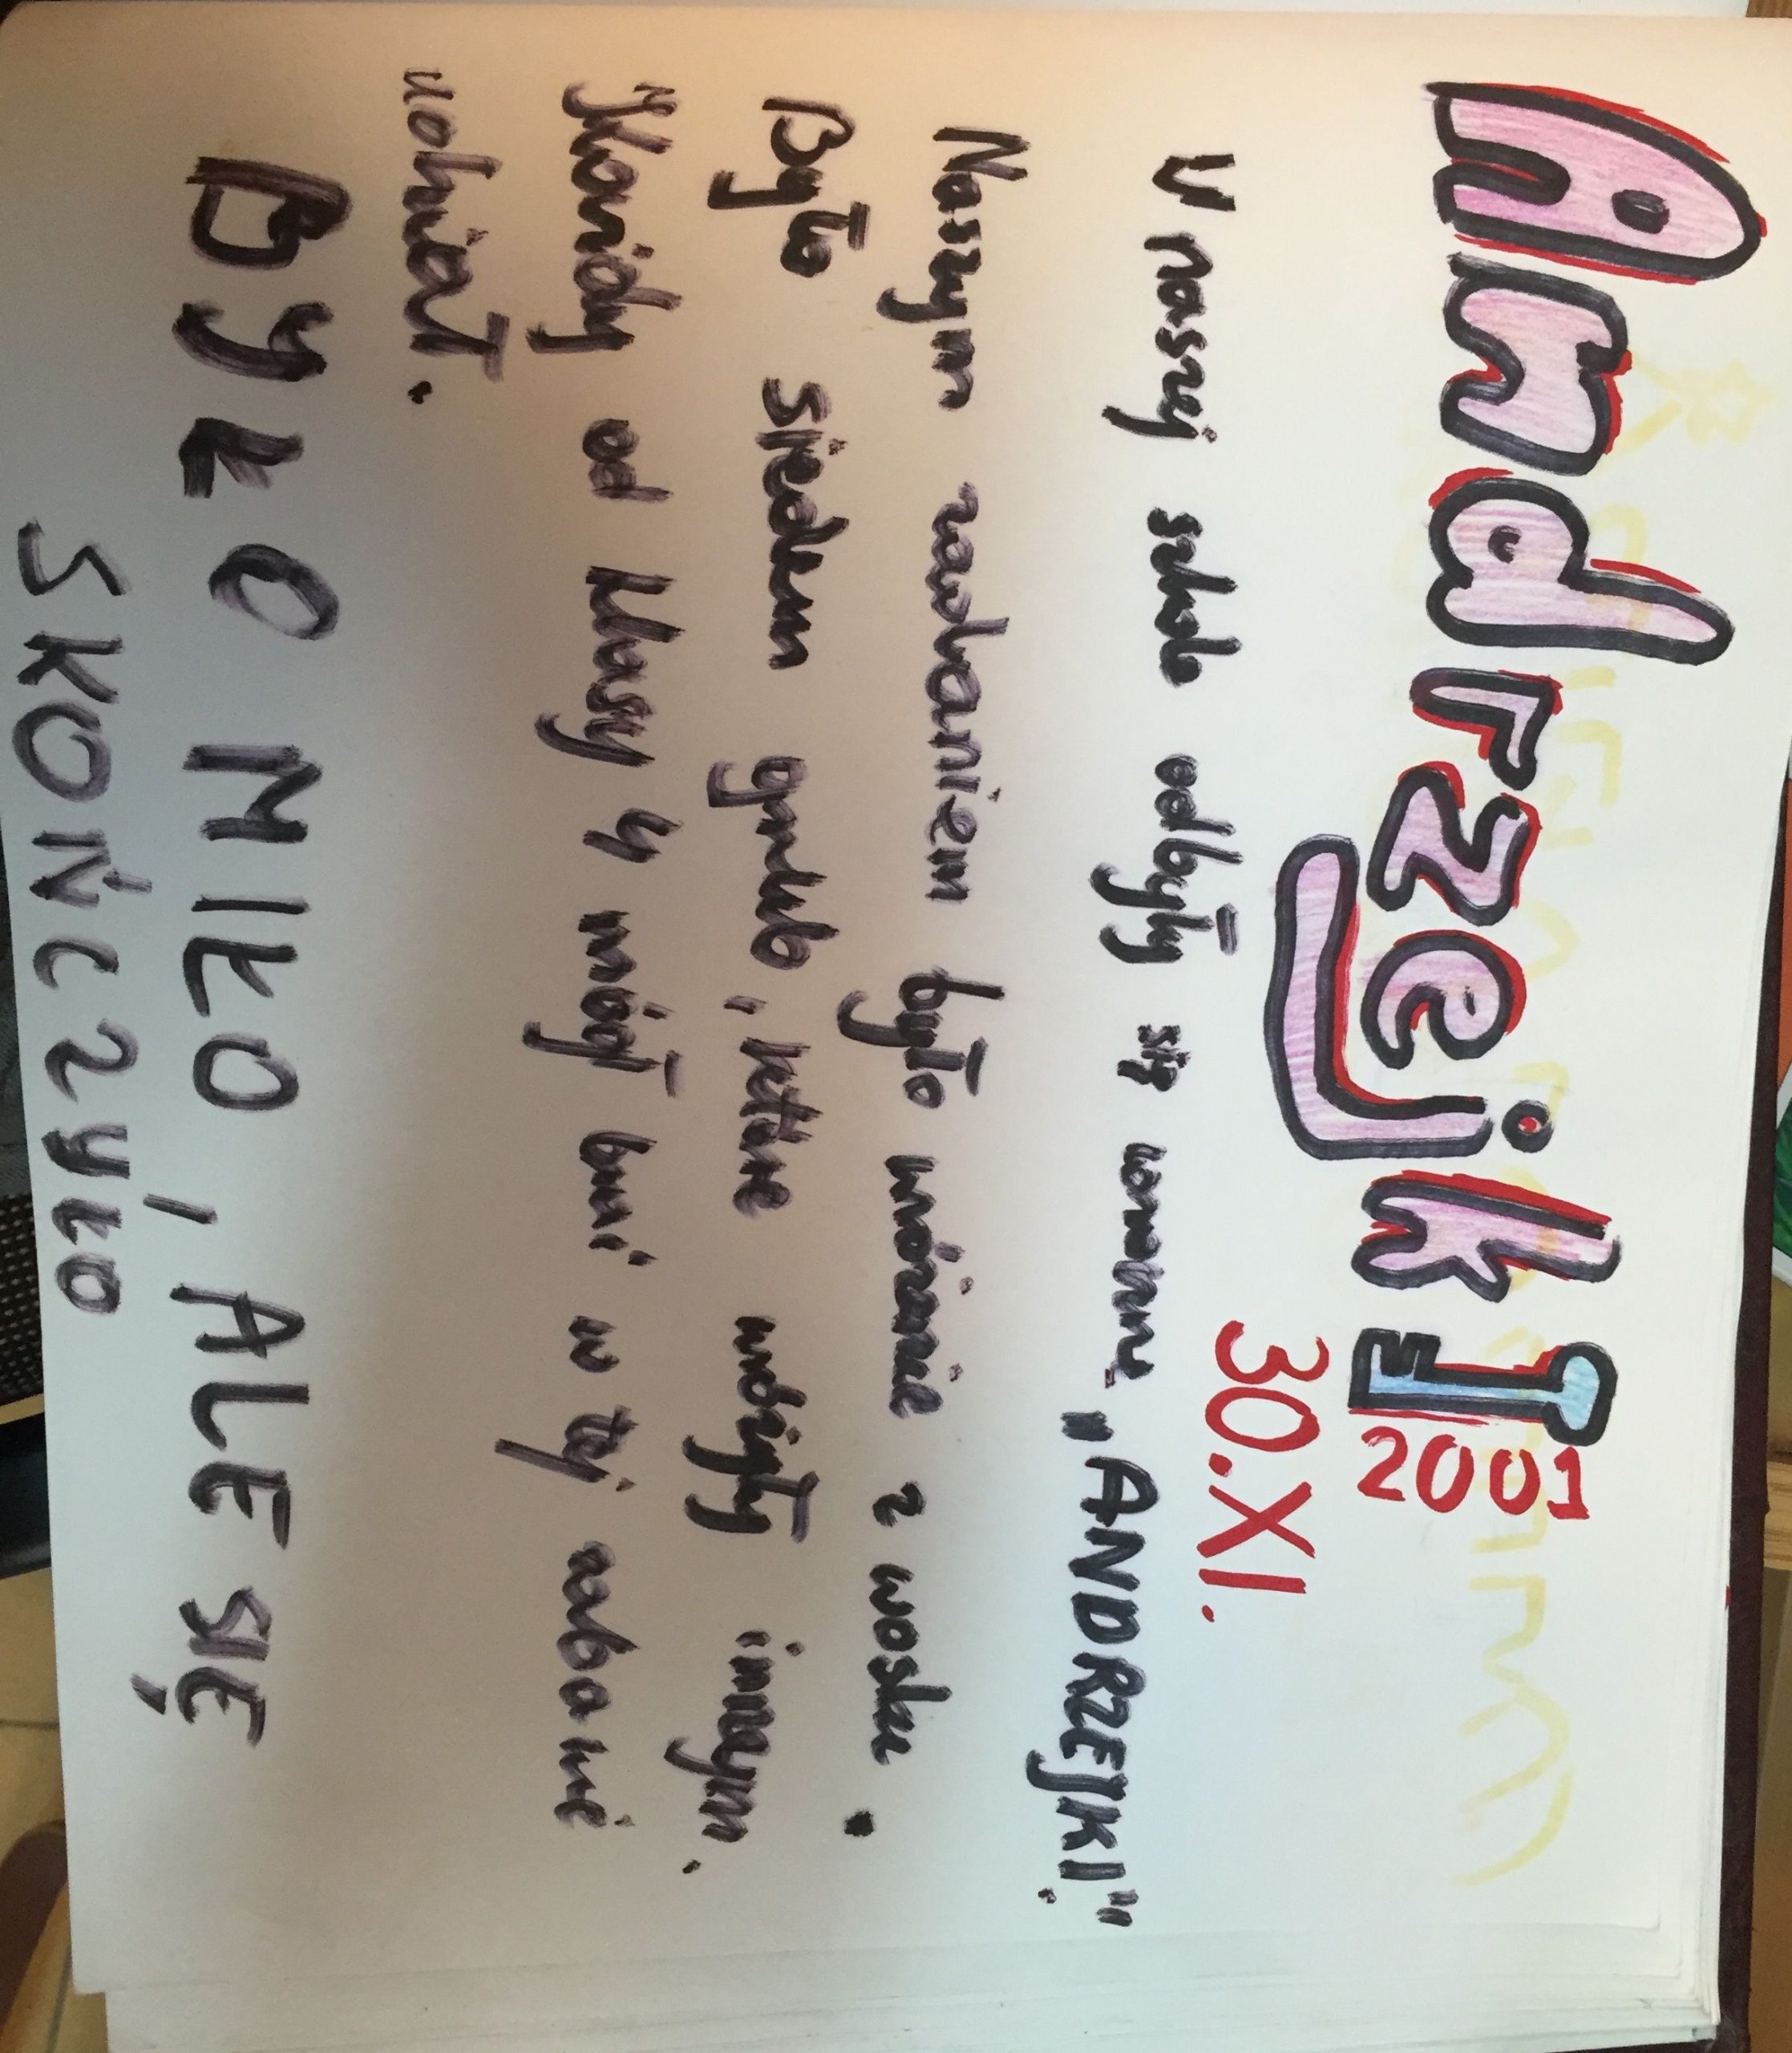 AndrzejkI 2001
30.XI.
U naszej szkole odbyły się "ANDRZEJKI".
Naszym zadaniem było wróżenie z wosku.
Było siedem grup, które wróżyły innym.
Każdy od klasy 4 mógł brać w tej zabawie
udział.
BYŁO MIŁO, ALE SIĘ
SKOŃCZYŁO